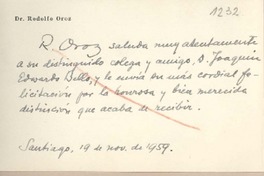 Dr. Rodolfo Oroz
1232
R. Oroz saluda muy atentamente
a su distinguido colega y amigo, D. Joaquín
Edwards Bello, y le envía su más cordial fe-
licitación por la honrosa y bien merecida
distinción que acaba de recibir.
Santiago, 19 de nov. de 1959.